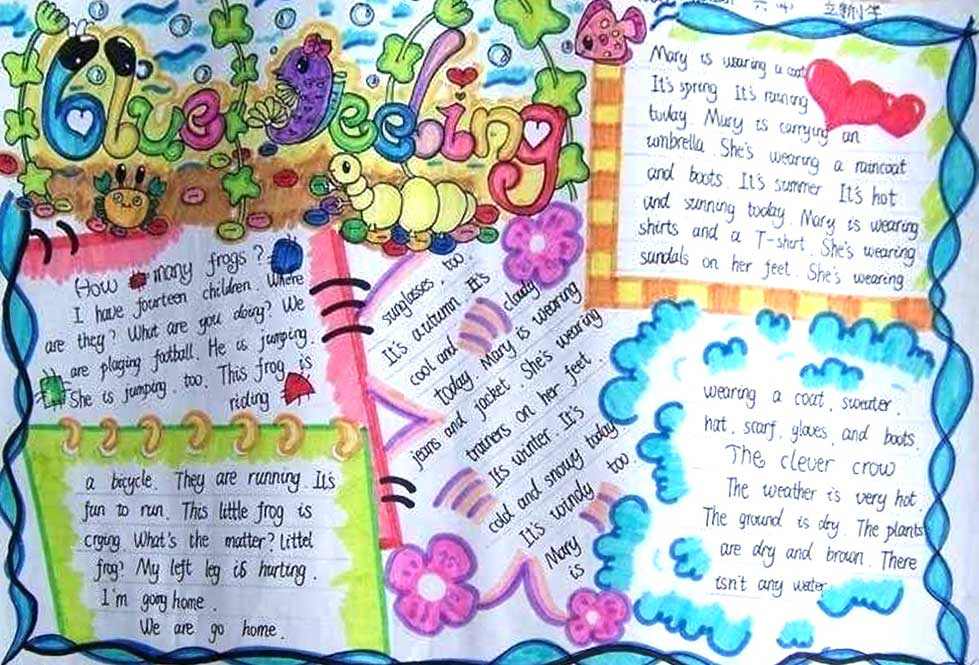 Blue Feeling
How many frogs?
I have fourteen children. Where
are they? What are you doing? We
are playing football. He is jumping.
She is jumping, too. This frog is
riding
a bicycle. They are running. It's
fun to run. This little frog is
crying. What's the matter? Littel
frog? My left leg is hurting.
I'm going home.
We are go home.
Mary is wearing a coat
It's spring It's raining
today. Mary is carrying an
umbrella. She's wearing a raincoat
and boots. It's summer It's hot
and sunning today. Mary is wearing
shirts and a T-shirt. She's wearing
sandals on her feet. She's wearing
sunglasses, too.
It's autumn. It's
cool and cloudy
today Mary is wearing
jeans and jacket. She's wearing
trainers on her feet.
Its winter. It's
cold and snowy today
It's windy too.
Mary
is
wearing a coat, sweater,
hat, scarf, gloves, and boots.
The clever crow
The weather is very hot.
The ground is dry. The plants
are dry and brown. There
isn't any water